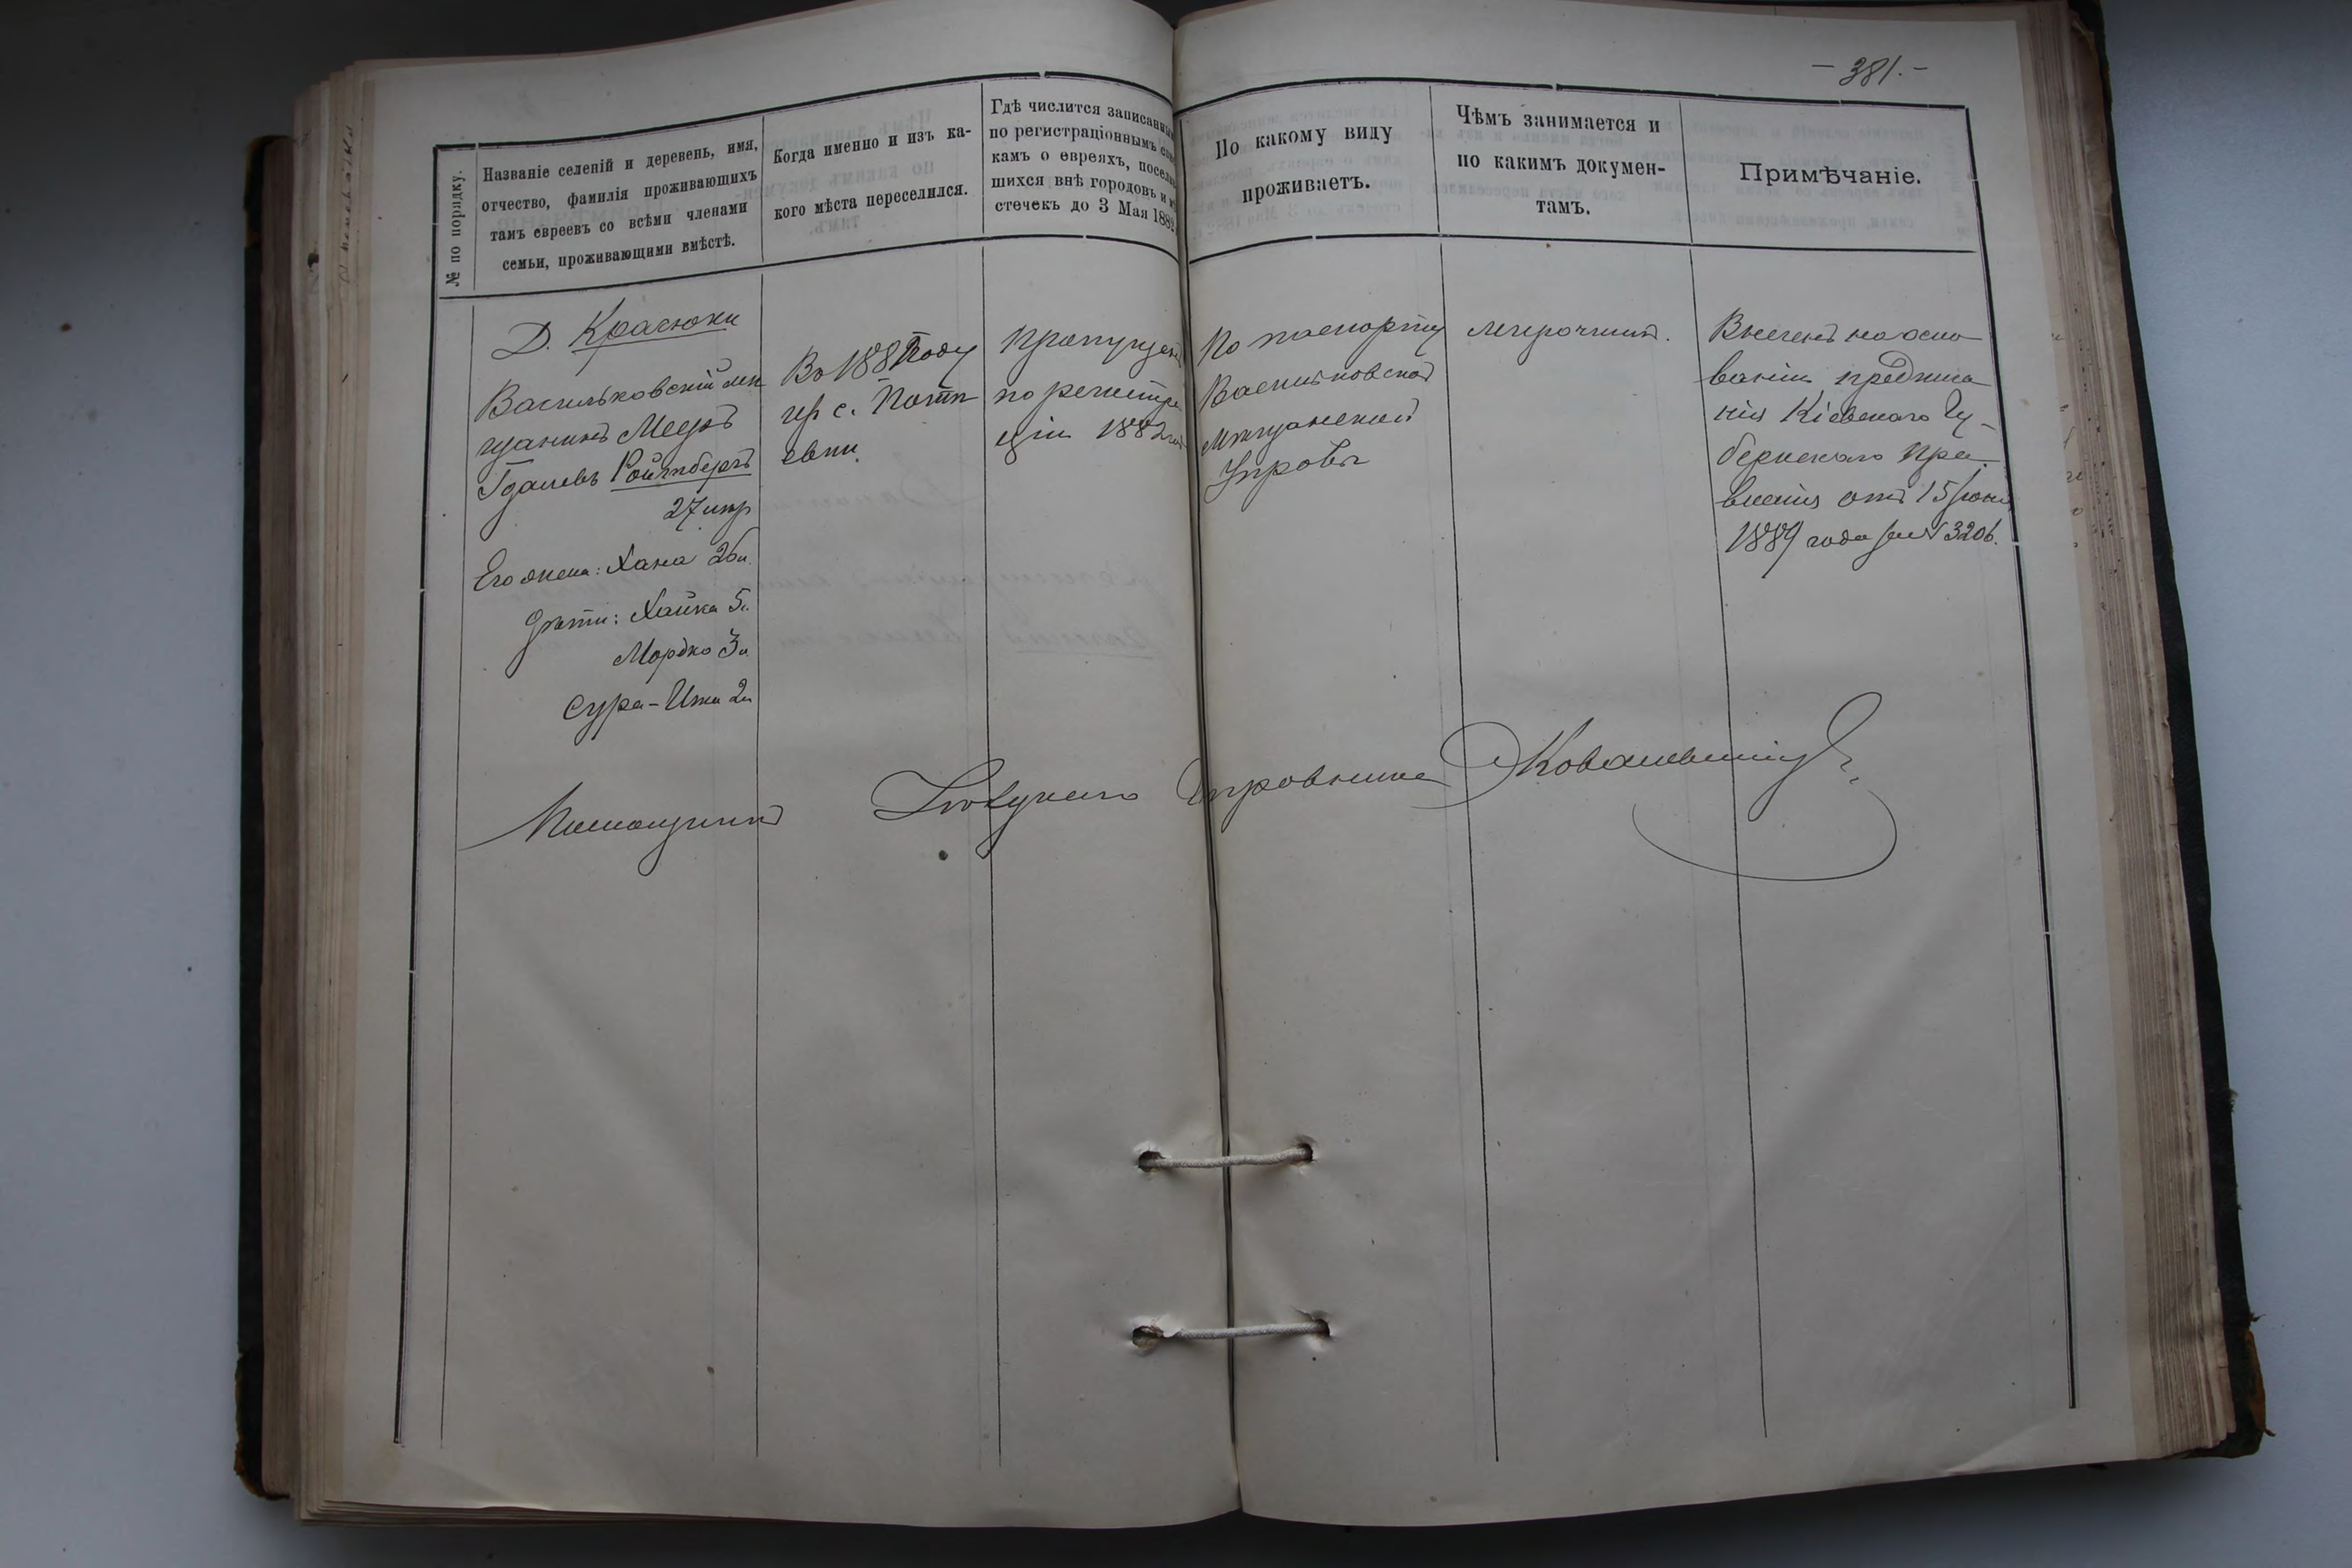 — 381. —
№ по порядку.
Названіе селеній и деревень, имя,
отчество, фамилія проживающихъ
тамъ евреевъ со всѣми членами
семьи, проживающими вмѣстѣ.
Когда именно и изъ ка-
кого мѣста переселился.
Гдѣ числится записаннымъ
по регистраціоннымъ
камъ о евреяхъ,
шихся внѣ городовъ и
стечекъ до 3 Мая 1882
По какому виду
проживаетъ.
Чѣмъ занимается и
по какимъ докумен-
тамъ.
Примѣчаніе.
Д. Красюки
Васильковскій мѣ
щанинъ
Гдалевъ Ройтбергъ
27 лѣтъ
Его жена: Хана 26 л.
Дѣти: Хайка 5 л.
Мордко 3 л.
Сура-Ита 2 л.
Въ году
изъ с. Поті
евки.
Пропущенъ
по регистра
ціи 1882 года
По паспорту
Васильковской
Мѣщанской
Управы
мирочникъ.
Внесенъ на осно
ваніи предписа
нія Кіевскаго Гу-
бернскаго Пра
вленія отъ 15 Іюня
1889 года за № 3206.
Помощникъ Исправника Ковалевскій